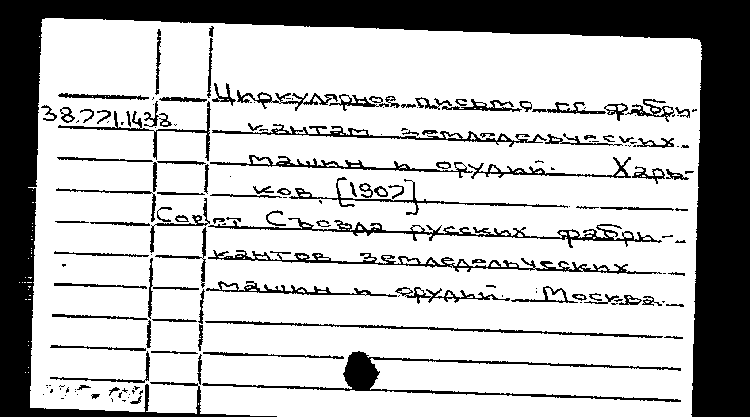 Циркулярное письмо гг. фабри-
38.771.1438. кантам земледельческих
машин и орудий. Харь-
ков, [1907].
Совет Съезда русских фабри-
кантов земледельческих
машин и орудий. Москва.